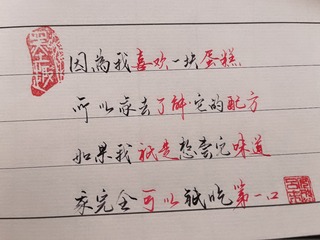 因為我喜欢一块蛋糕
所以我去了解它的配方
如果我祇是想嘗完味道
我完全可以祇吃第一口